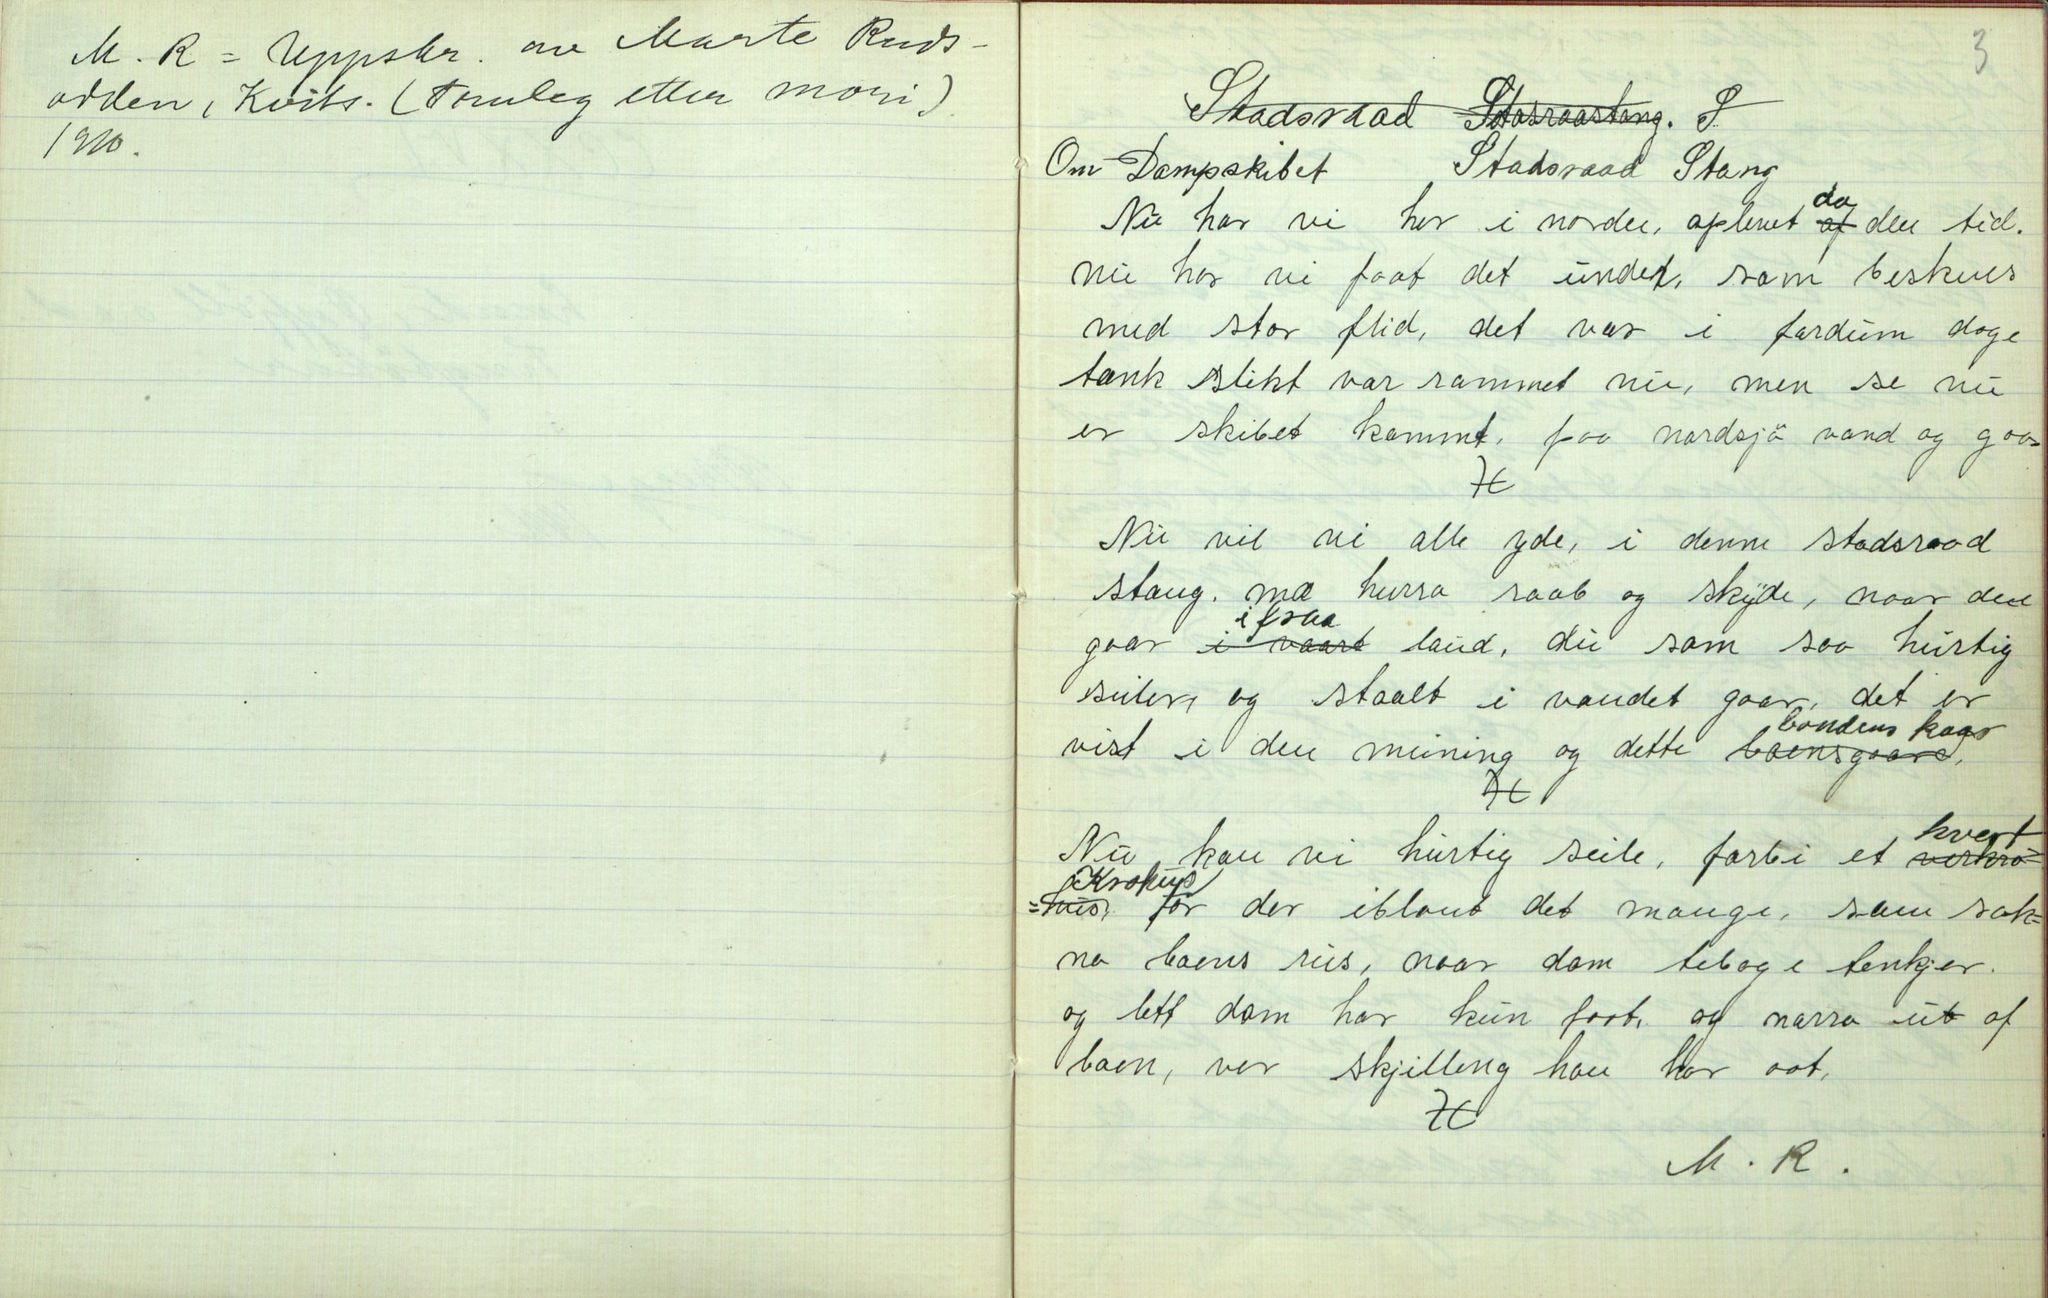 M. R = Uppskr. av Marte Ruds-
odden, Kvits. (Truleg etter mori)
1910.
3
Stadsraad Stasraastang. S
Om Dampskibet Stadsraad Stang
Nu har vi her i norden, oplevet af da den tid.
nu har vi faat det under, som beskues
med stor flid, det var i fordum dage
tænk slikt var rammet nu, men se nu
er skibet kommt, paa nordsjö vand og gaar
Nu vil vi alle yde, i denne stadsraad
stang. ma hurra raab og skyde, naar den
gaar i vaart i fraa land, du som saa hurtig
seiler, og staalt i vandet gaar, det er
vist i den meining og dette boensgaard, bondens kaar
Nu kan vi hurtig seile, forbi et verkro= hvert
=hus, Krohus for der iblant det mange, som sak=
na boens rus, naar dom tebage tenkjer.
og lett dom har kun faat, og narra ut af
boen, ver skjilleng han har aat,
M. R.